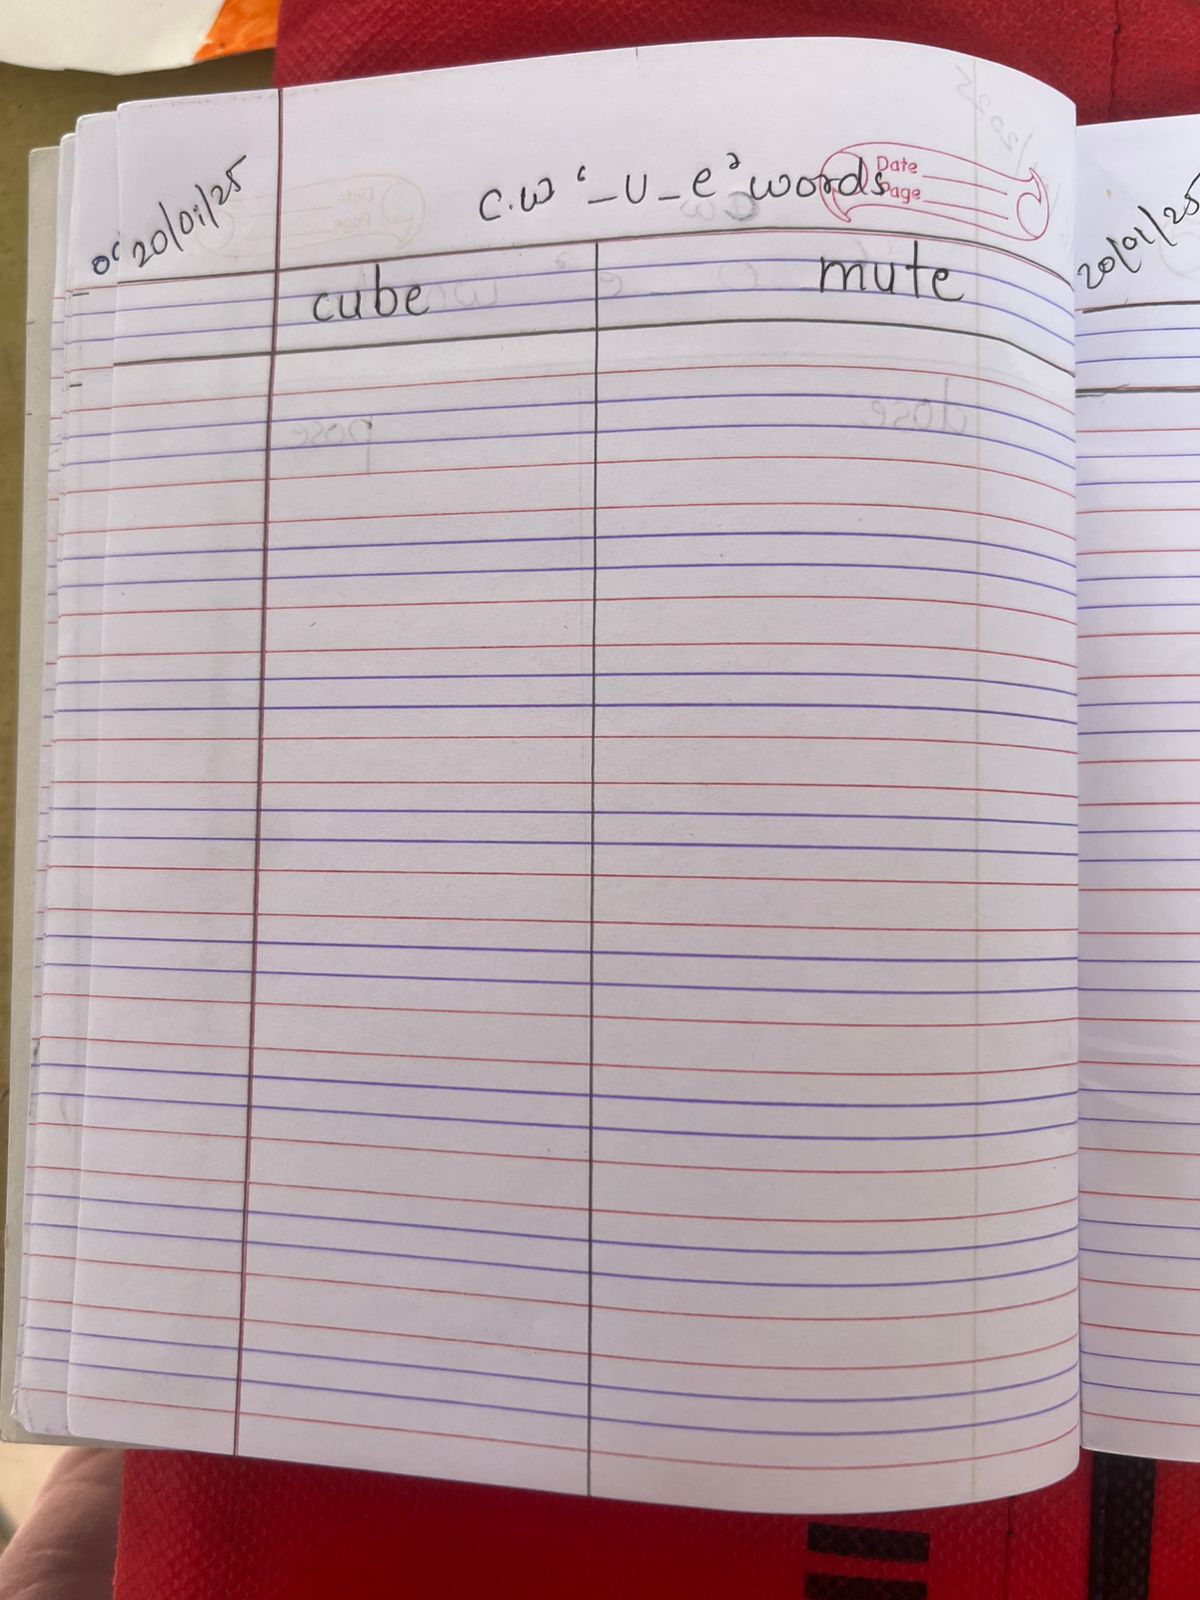 20/01/25
c.w '_u_e' words
Date
Page
cube mute
20/01/25